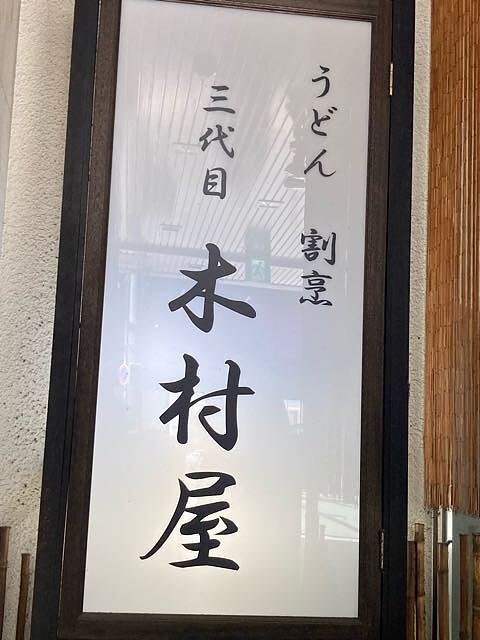 うどん 割烹
三代目
木村屋